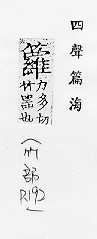 四聲篇海
籮力多切
竹器也
(竹部
R192)